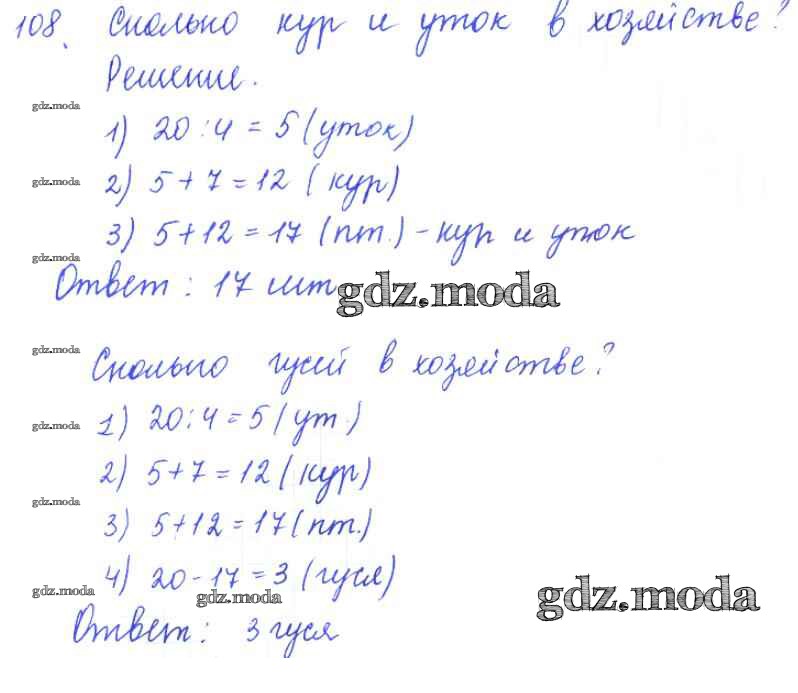 108. Сколько кур и уток в хозяйстве?
Решение.
gdz.moda
1) 20 : 4 = 5 (уток)
gdz.moda
2) 5 + 7 = 12 (кур)
3) 5 + 12 = 17 (пт.) - кур и уток
gdz.moda
Ответ : 17 шт
gdz.moda
gdz.moda
Сколько гусей в хозяйстве?
gdz.moda
1) 20 : 4 = 5 (ут.)
2) 5 + 7 = 12 (кур)
gdz.moda
3) 5 + 12 = 17 (пт.)
4) 20 - 17 = 3 (гуся)
gdz.moda
gdz.moda
gdz.moda
Ответ : 3 гуся